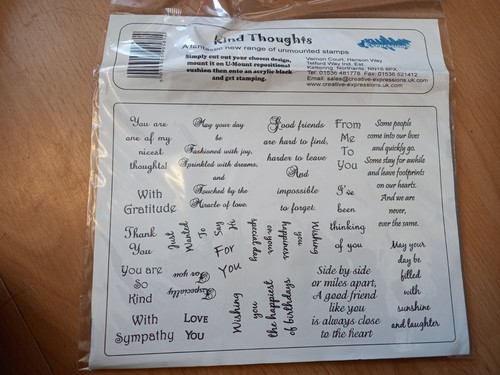 Kind Thoughts
A fantastic new range of unmounted stamps
Simply cut out your chosen design,
mount it on U-Mount repositional
cushion then onto an acrylic block
and get stamping.
Vernon Court, Henson Way
Telford Way Ind. Est.
Kettering, Northants, NN16 8PX
Tel: 01536 481778 Fax: 01536 521412
Email: sales@creative-expressions.uk.com
www.creative-expressions.uk.com
You are
one of my
nicest
thoughts!
May your day
be
Fashioned with joy,
Sprinkled with dreams,
and
Touched by the
Miracle of love.
Good friends
are hard to find,
harder to leave
And
impossible
to forget.
From
Me
To
You
Some people
come into our lives
and quickly go.
Some stay for awhile
and leave footprints
on our hearts.
And we are
never,
ever the same.
With
Gratitude
I've
been
thinking
of you
Thank
You
Just
Wanted
To
Say
Hi
For
You
Wishing
you
happiness
on your
special day
May your
day be
filled
with
sunshine
and laughter
You are
So
Kind
Especially
For You
Wishing
you
the happiest
of birthdays
Side by side
or miles apart,
A good friend
like you
is always close
to the heart
With
Sympathy
Love
You